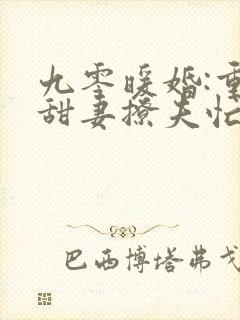 九零暖婚:重
甜妻撩夫忙
巴西博塔弗戈